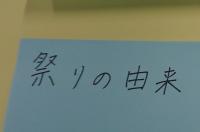 祭りの由来